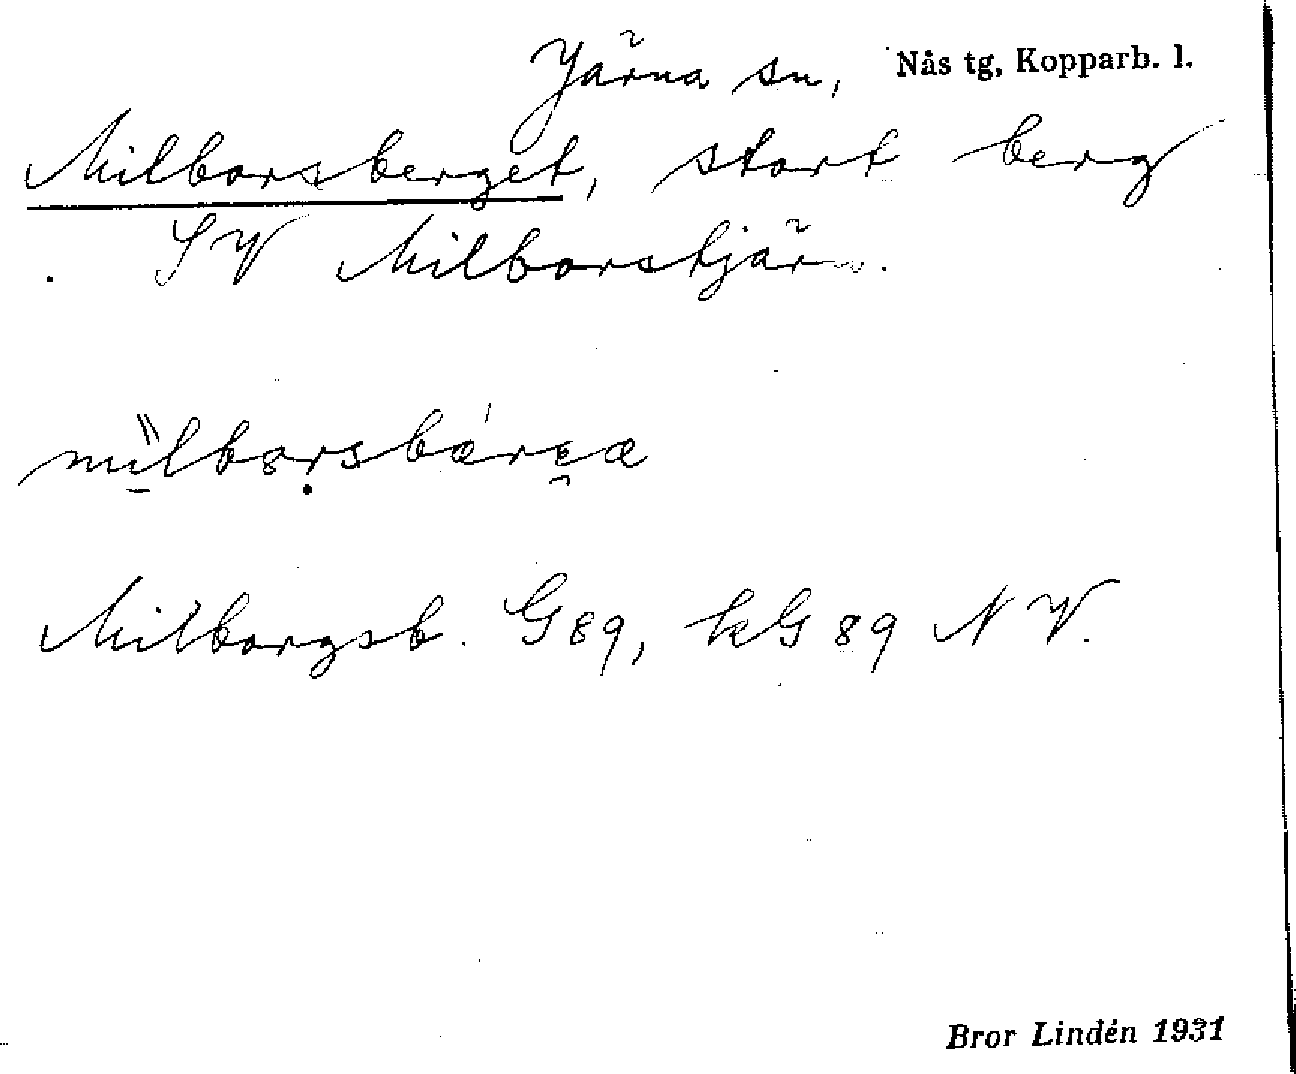 Järna sn, Nås tg, Kopparb. l.
Milborsberget, stort berg
SV Milborstjärn.
Milborgsb. G89, kG 89 NV.
Bror Lindén 1931